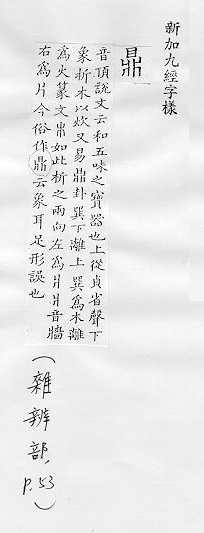 新加九經字樣
鼎
音頂說文云和五味之寶器也上從貞省聲下
象析木以炊又易鼎卦巽下離上巽為木離
為火篆文𣎳如此析之兩向左為爿爿音牆
右為片今俗作鼎云象耳足形誤也
(雜辨部,
P.53)